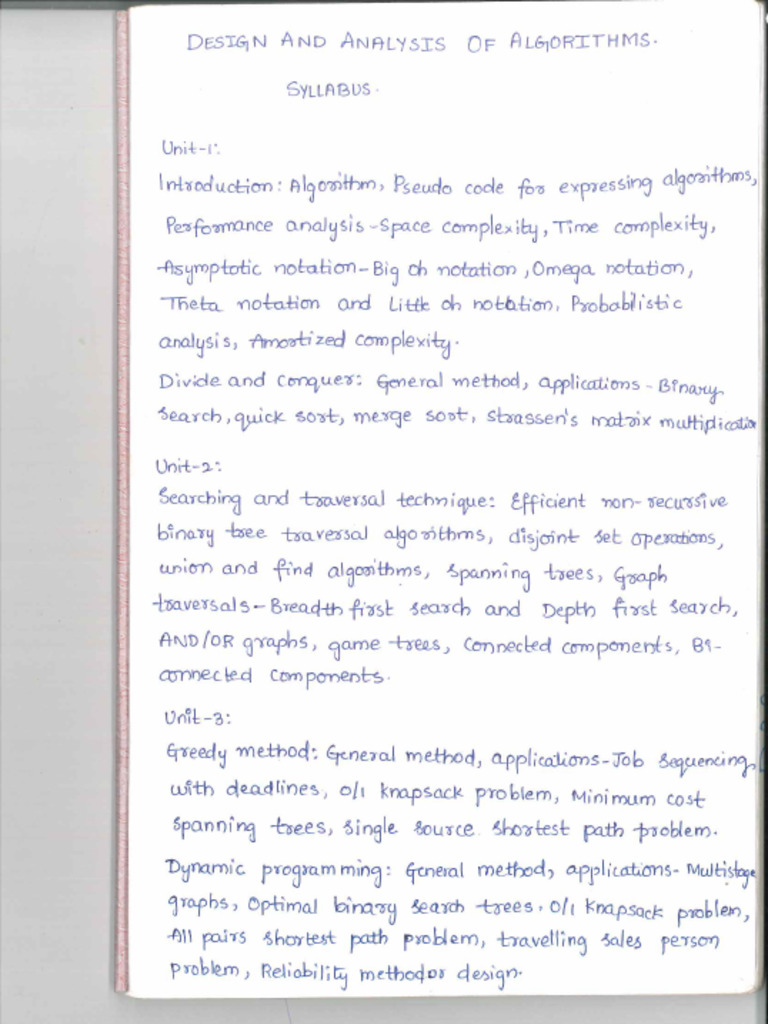 DESIGN AND ANALYSIS OF ALGORITHMS.
SYLLABUS.
Unit-1:
Introduction: Algorithm, Pseudo code for expressing algorithms,
Performance analysis-Space complexity, Time complexity,
Asymptotic notation-Big oh notation, Omega notation,
Theta notation and Little oh notation, Probabilistic
analysis, Amortized complexity.
Divide and conquer: General method, applications-Binary
search, quick sort, merge sort, Strassen's matrix multiplication
Unit-2:
Searching and traversal technique: Efficient non-recursive
binary tree traversal algorithms, disjoint set operations,
union and find algorithms, spanning trees, Graph
traversals-Breadth first search and Depth first search,
AND/OR graphs, game trees, Connected components, Bi-
connected components.
Unit-3:
Greedy method: General method, applications-Job sequencing
with deadlines, 0/1 knapsack problem, Minimum cost
spanning trees, single source shortest path problem.
Dynamic programming: General method, applications-Multistage
graphs, Optimal binary search trees, 0/1 knapsack problem,
All pairs shortest path problem, travelling sales person
problem, Reliability methodor design.